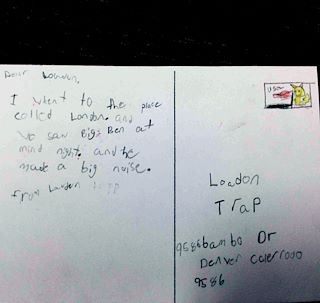 Dear London,
I went to the place
called London. and
we saw Big Ben at
mind night. and he
made a big noise.
from Landon
USA
Loadon
Trap
9586bambo Dr
Denver colerrodo
9586